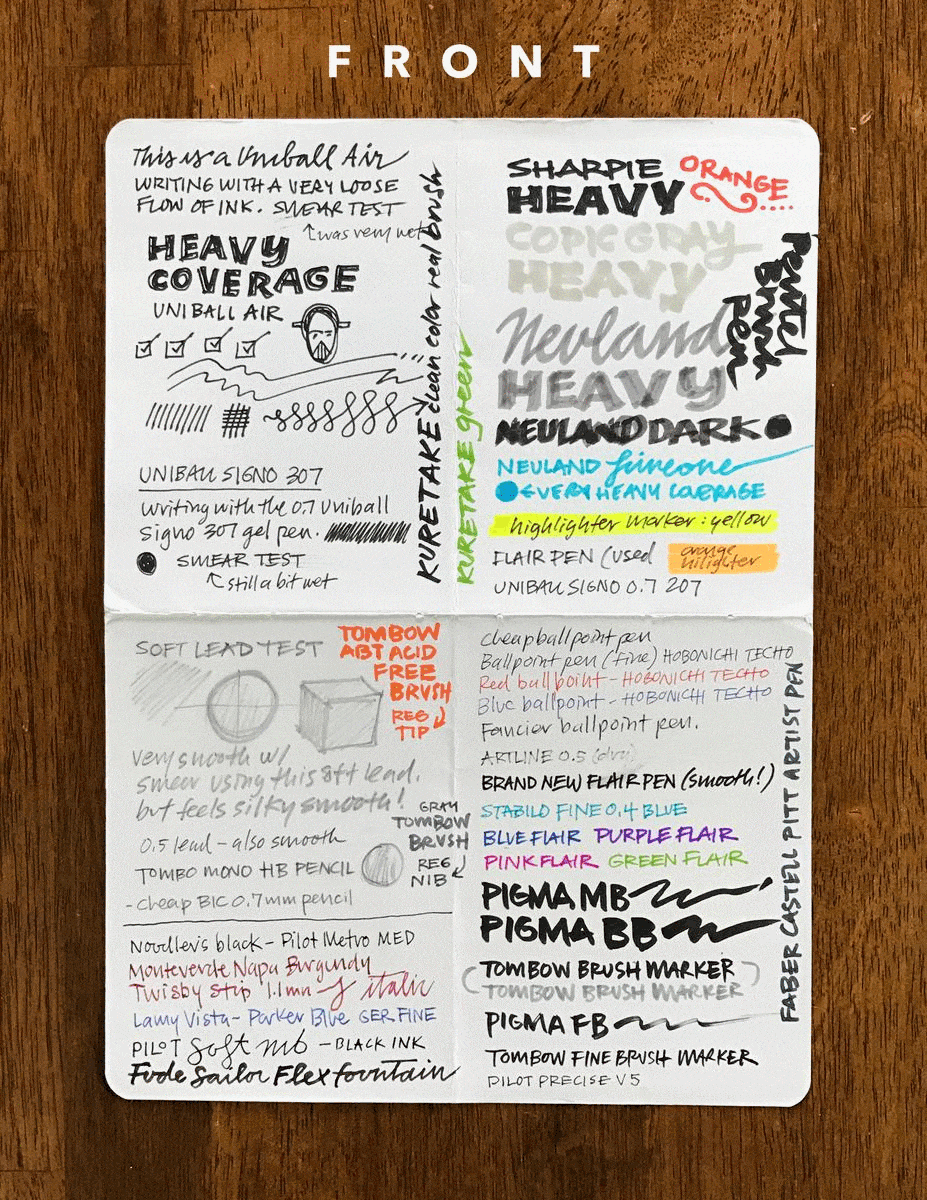 FRONT
This is a Uniball Air
WRITING WITH A VERY LOOSE
FLOW OF INK. SMEAR TEST
↑ was very wet
HEAVY
COVERAGE
UNIBALL AIR
KURETAKE clean color real brush
KURETAKE green
UNIBALL SIGNO 307
Writing with the 0.7 Uniball
Signo 307 gel pen.
SMEAR TEST
↑ still a bit wet
SHARPIE
HEAVY
ORANGE
COPIC GRAY
HEAVY
Pentel
Brush
Pen
Neuland
HEAVY
NEULAND DARK
NEULAND fineone
EVERY HEAVY COVERAGE
highlighter marker: yellow
FLAIR PEN (used
orange
hilighter
UNIBALL SIGNO 0.7 207
SOFT LEAD TEST
TOMBOW
ABT ACID
FREE
BRUSH
REG
TIP
Very smooth w/
smear using this soft lead.
but feels silky smooth!
GRAY
TOMBOW
BRUSH
REG
NIB
0.5 lead - also smooth
TOMBO MONO HB PENCIL
- cheap BIC 0.7mm pencil
Noodler's black - Pilot Metro MED
Monteverde Napa Burgundy
Twisby Stip 1.1mm italic
Lamy Vista - Parker Blue GER FINE
PILOT Soft mb - BLACK INK
Fude Sailor Flex fountain
cheap ballpoint pen
Ballpoint pen (fine) HOBONICHI TECHO
Red ballpoint - HOBONICHI TECHO
Blue ballpoint - HOBONICHI TECHO
Fancier ballpoint pen.
ARTLINE 0.5 (dry)
BRAND NEW FLAIR PEN (smooth!)
STABILO FINE 0.4 BLUE
BLUE FLAIR PURPLE FLAIR
PINK FLAIR GREEN FLAIR
PIGMA MB
PIGMA BB
TOMBOW BRUSH MARKER
TOMBOW BRUSH MARKER
PIGMA FB
TOMBOW FINE BRUSH MARKER
PILOT PRECISE V5
FABER CASTELL PITT ARTIST PEN